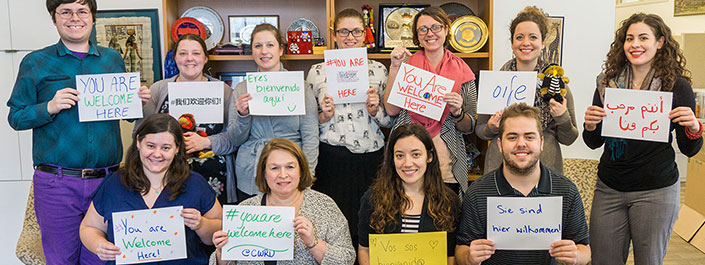 YOU ARE
WELCOME
HERE
#我们欢迎你们!
Eres
bienvenido
aquí
#YOU ARE
HERE
You Are
WELCOME
HERE
أنتم مرحب
بكم هنا
You are
Welcome
Here!
#youare
welcomehere
@CWRU
Vos sos
bienvenid@
Sie sind
hier willkommen!